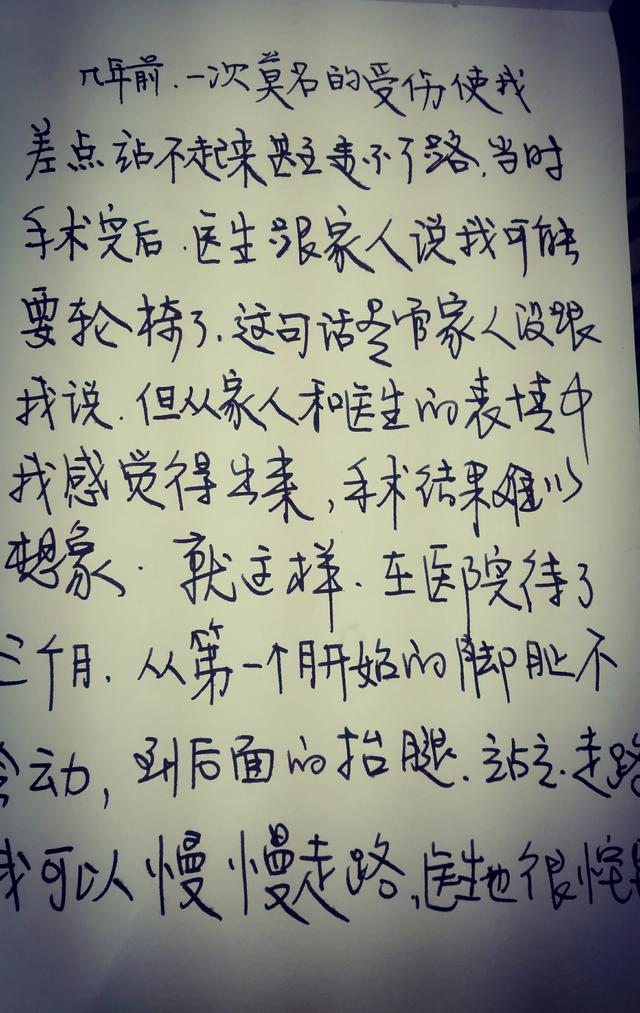 几年前.一次莫名的受伤使我
差点站不起来甚至走不了路.当时
手术完后.医生跟家人说我可能
要轮椅了.这句话尽管家人没跟
我说.但从家人和医生的表情中
我感觉得出来,手术结果难以
想象.就这样.在医院待了
三个月.从第一个月开始的脚趾不
会动,到后面的抬腿.站立.走路
我可以慢慢走路,医生也很惊